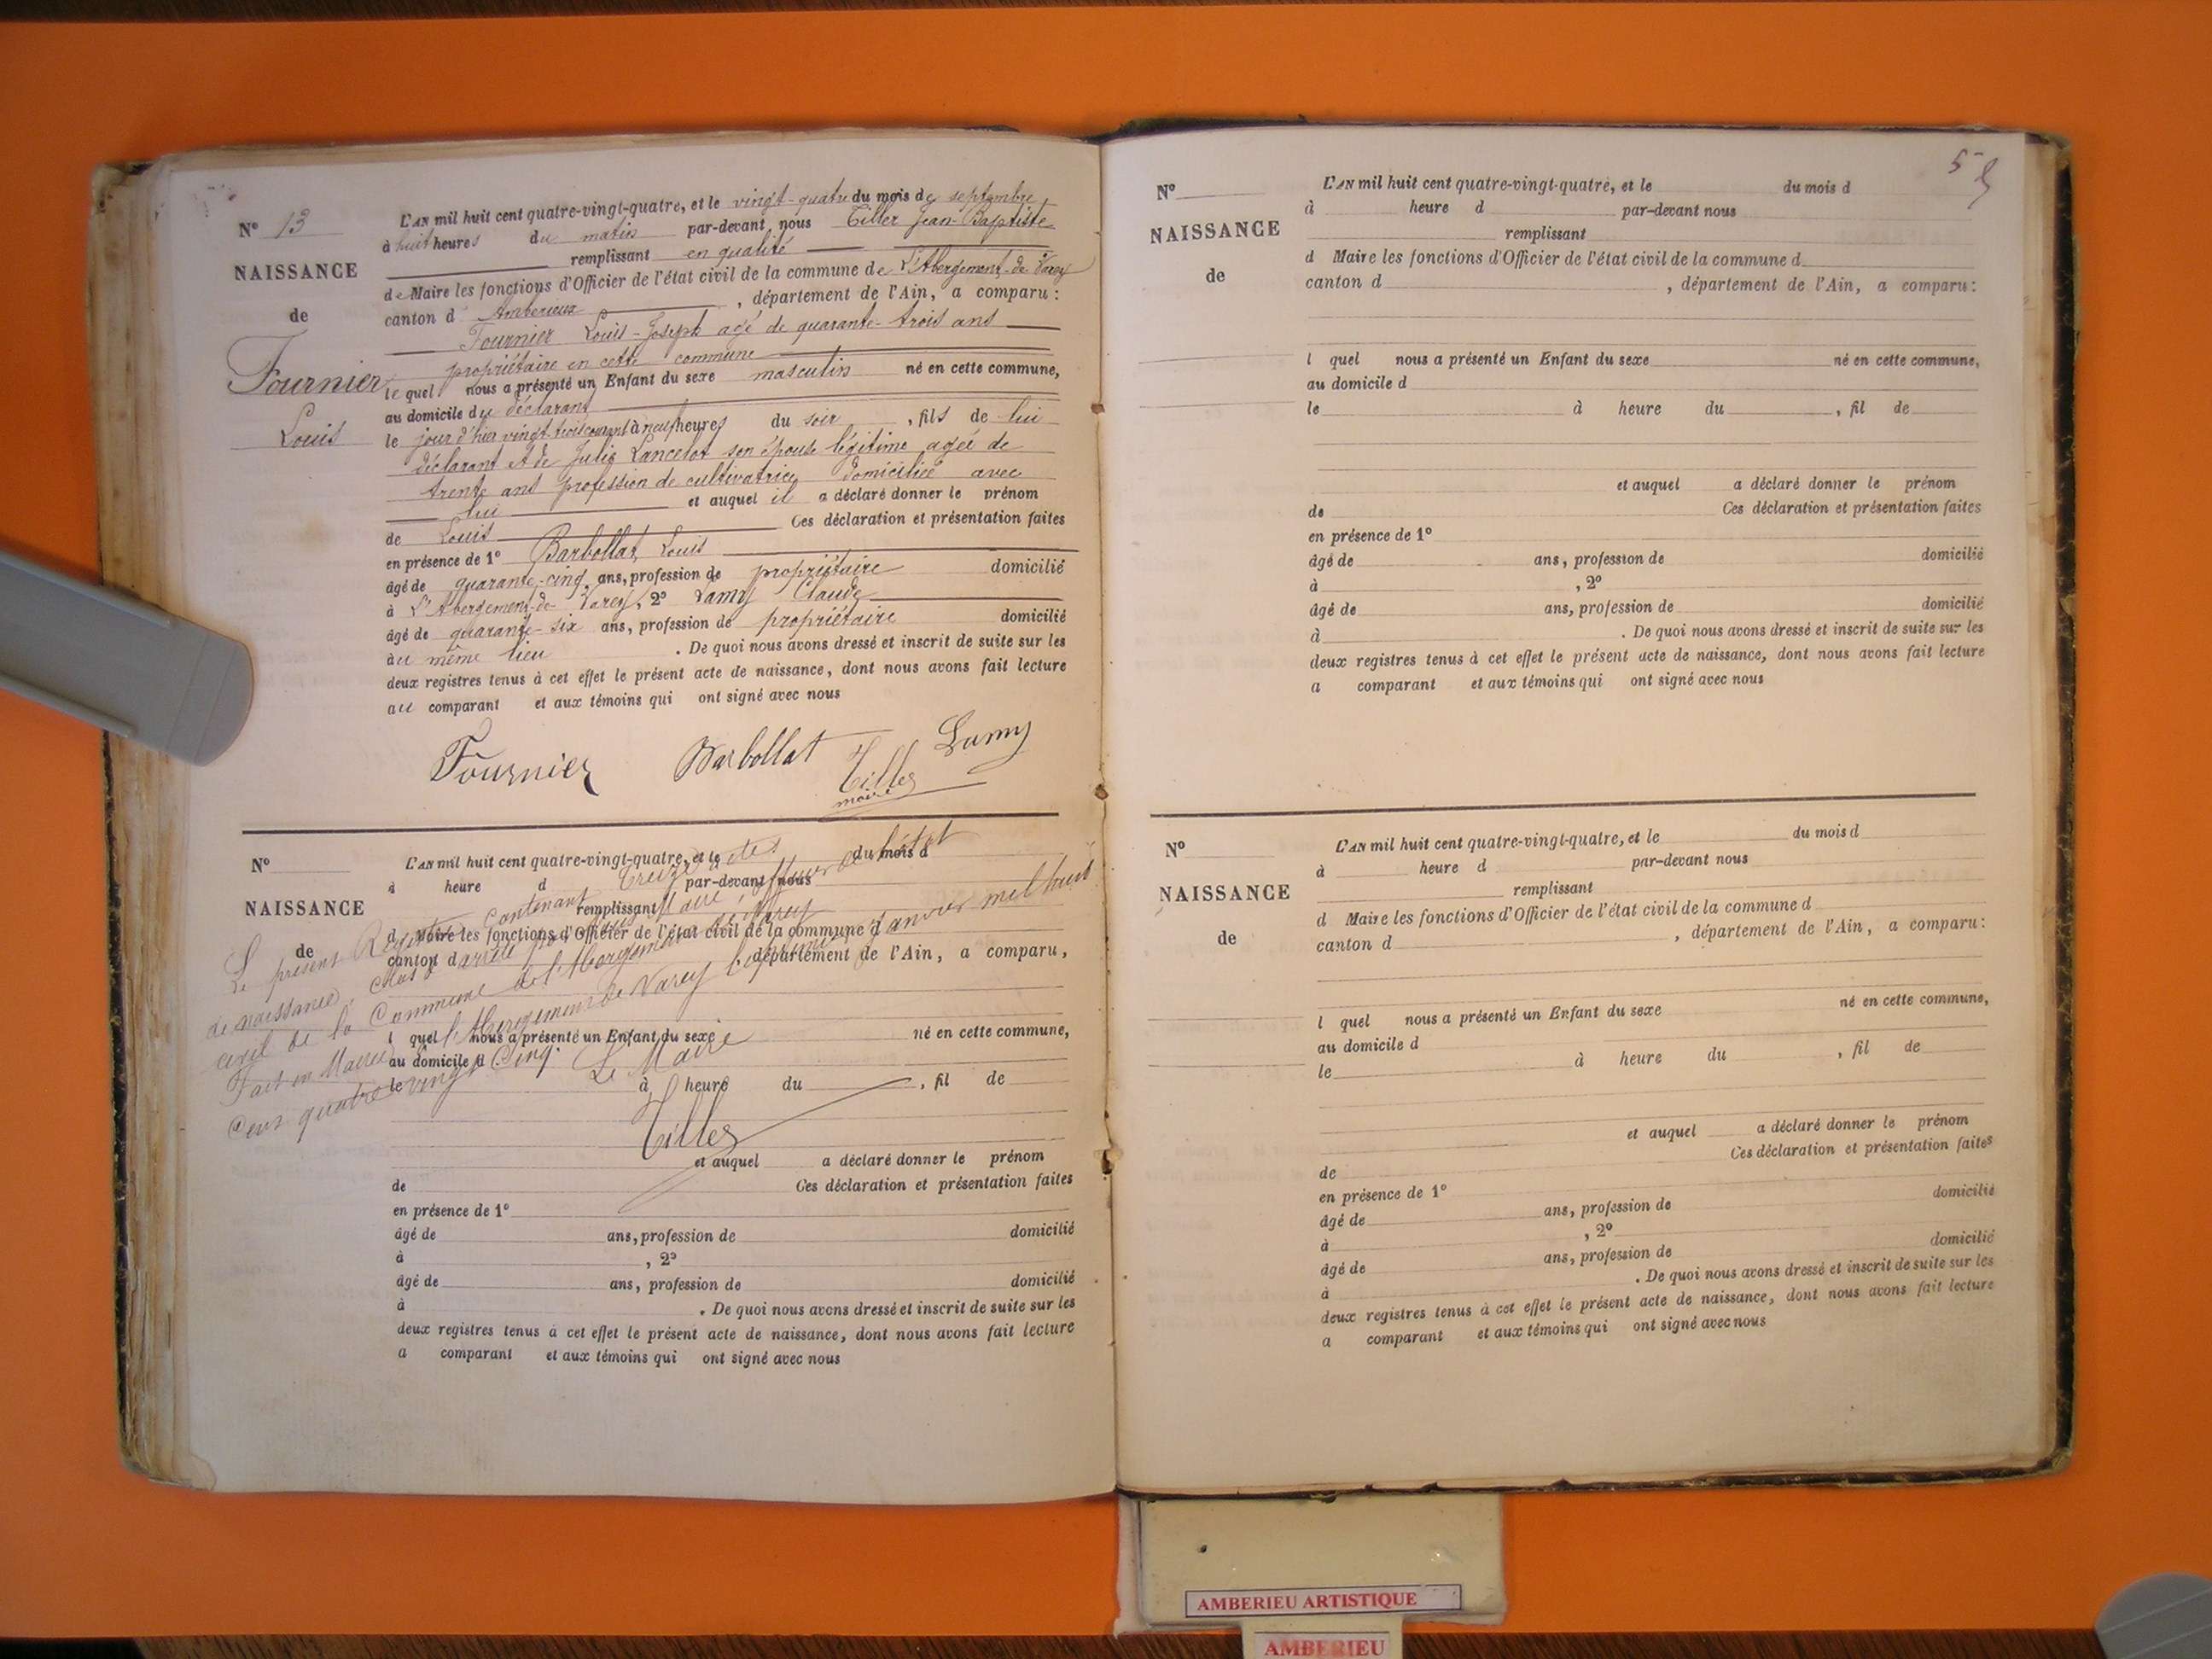 N° 13
NAISSANCE
de
Fournier
Louis
L'AN mil huit cent quatre-vingt-quatre, et le vingt-quatre du mois de septembre
à huit heures du matin par-devant nous Tiller Jean-Baptiste
remplissant en qualité
de Maire les fonctions d'Officier de l'état civil de la commune de L'Abergement-de-Varey
canton d'Ambérieux, département de l'Ain, a comparu :
Fournier Louis-Joseph agé de quarante-trois ans
propriétaire en cette commune
le quel nous a présenté un Enfant du sexe masculin né en cette commune,
au domicile du déclarant
le jour d'hier vingt trois courant à neuf heures du soir, fils de lui
déclarant et de Julie Lancelot son épouse légitime agée de
trente ans profession de cultivatrice domiciliée avec
lui et auquel il a déclaré donner le prénom
de Louis Ces déclaration et présentation faites
en présence de 1° Barbollat Louis
âgé de quarante-cinq ans, profession de propriétaire domicilié
à L'Abergement-de-Varey, 2° Lamy Claude
âgé de quarante-six ans, profession de propriétaire domicilié
au même lieu. De quoi nous avons dressé et inscrit de suite sur les
deux registres tenus à cet effet le présent acte de naissance, dont nous avons fait lecture
au comparant et aux témoins qui ont signé avec nous
Fournier Barbollat Tiller Lamy
maire
N°
NAISSANCE
de
L'AN mil huit cent quatre-vingt-quatre, et le du mois d
à heure d par-devant nous
remplissant
d Maire les fonctions d'Officier de l'état civil de la commune d
canton d, département de l'Ain, a comparu,
l quel nous a présenté un Enfant du sexe né en cette commune,
au domicile d
le à heure du, fil de
et auquel a déclaré donner le prénom
de Ces déclaration et présentation faites
en présence de 1°
âgé de ans, profession de domicilié
à, 2°
âgé de ans, profession de domicilié
à. De quoi nous avons dressé et inscrit de suite sur les
deux registres tenus à cet effet le présent acte de naissance, dont nous avons fait lecture
a comparant et aux témoins qui ont signé avec nous
Le présent Registre contenant treize actes
de naissance, clos & arrêté par nous Maire, officier de l'état
civil de la Commune de l'Abergement de Varey
Fait en Mairie à l'Abergement de Varey le premier Janvier mil huit
cent quatre vingt cinq. Le Maire
Tiller
N°
NAISSANCE
de
L'AN mil huit cent quatre-vingt-quatre, et le du mois d
à heure d par-devant nous
remplissant
d Maire les fonctions d'Officier de l'état civil de la commune d
canton d, département de l'Ain, a comparu :
l quel nous a présenté un Enfant du sexe né en cette commune,
au domicile d
le à heure du, fil de
et auquel a déclaré donner le prénom
de Ces déclaration et présentation faites
en présence de 1°
âgé de ans, profession de domicilié
à, 2°
âgé de ans, profession de domicilié
à. De quoi nous avons dressé et inscrit de suite sur les
deux registres tenus à cet effet le présent acte de naissance, dont nous avons fait lecture
a comparant et aux témoins qui ont signé avec nous
N°
NAISSANCE
de
L'AN mil huit cent quatre-vingt-quatre, et le du mois d
à heure d par-devant nous
remplissant
d Maire les fonctions d'Officier de l'état civil de la commune d
canton d, département de l'Ain, a comparu:
l quel nous a présenté un Enfant du sexe né en cette commune,
au domicile d
le à heure du, fil de
et auquel a déclaré donner le prénom
de Ces déclaration et présentation faites
en présence de 1°
âgé de ans, profession de domicilié
à, 2°
âgé de ans, profession de domicilié
à. De quoi nous avons dressé et inscrit de suite sur les
deux registres tenus à cet effet le présent acte de naissance, dont nous avons fait lecture
a comparant et aux témoins qui ont signé avec nous
AMBERIEU ARTISTIQUE
AMBERIEU